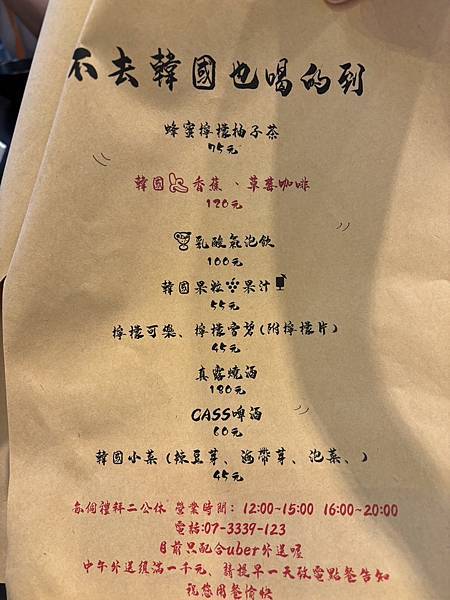 不去韓國也喝的到
蜂蜜檸檬柚子茶
75元
韓國香蕉、草莓咖啡
120元
乳酸氣泡飲
100元
韓國果粒果汁
55元
檸檬可樂、檸檬雪碧(附檸檬片)
45元
真露燒酒
180元
CASS啤酒
80元
韓國小菜(辣豆芽、海帶芽、泡菜、)
45元
每個禮拜二公休 營業時間: 12:00~15:00 16:00~20:00
電話:07-3339-123
目前只配合uber外送喔
中午外送須滿一千元, 請提早一天致電點餐告知
祝您用餐愉快